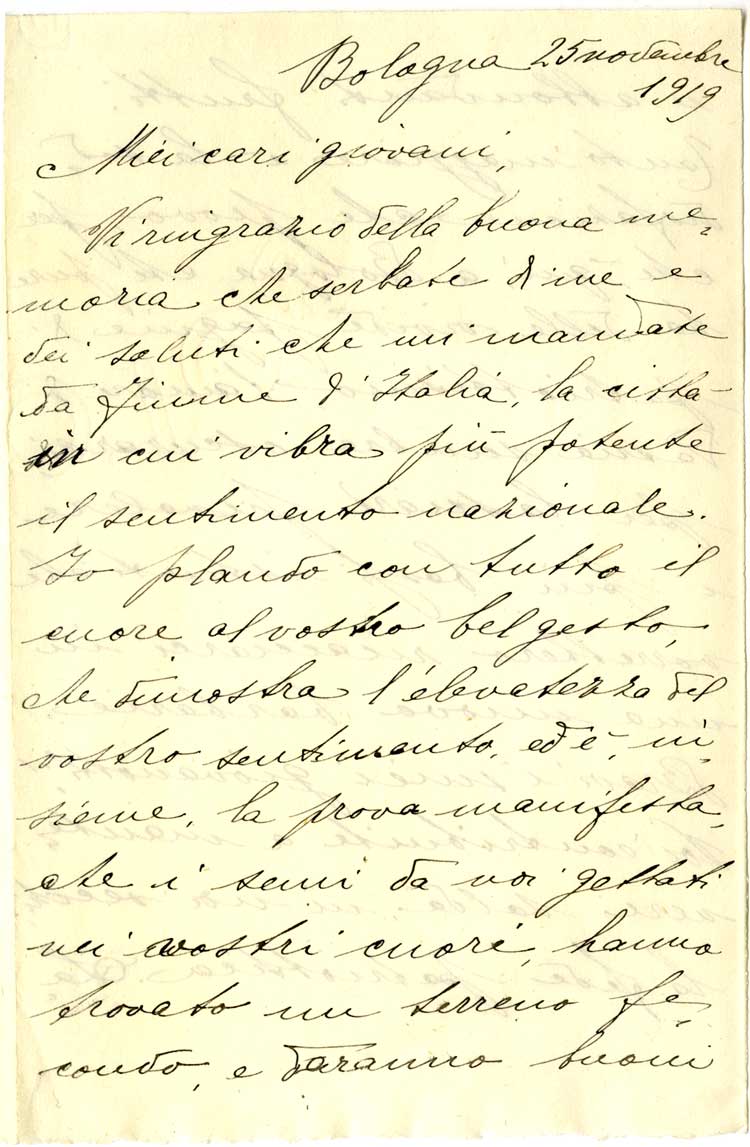 Bologna 25 novembre
1919
Miei cari giovani,
Vi ringrazio della buona me-
moria che serbate di me e
dei saluti che mi mandate
da Fiume d'Italia, la città
in cui vibra più potente
il sentimento nazionale.
Io plaudo con tutto il
cuore al vostro bel gesto,
che dimostra l'elevatezza del
vostro sentimento, ed è, in-
sieme, la prova manifesta,
che i semi da noi gettati
nei vostri cuori, hanno
trovato un terreno fe-
condo, e daranno buoni